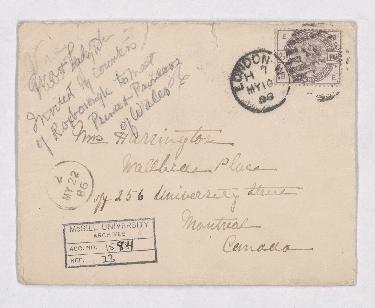 Invited by countess
of Rosborough to meet
Prince & Princess
of Wales
LONDON
H 7
MY 10
86
Mrs Harrington
Wallbrae Place
Off 256 University Street
Montreal
Canada
MY 22
86
McGILL UNIVERSITY
ARCHIVES
ACC. NO. 1584
REF. 23